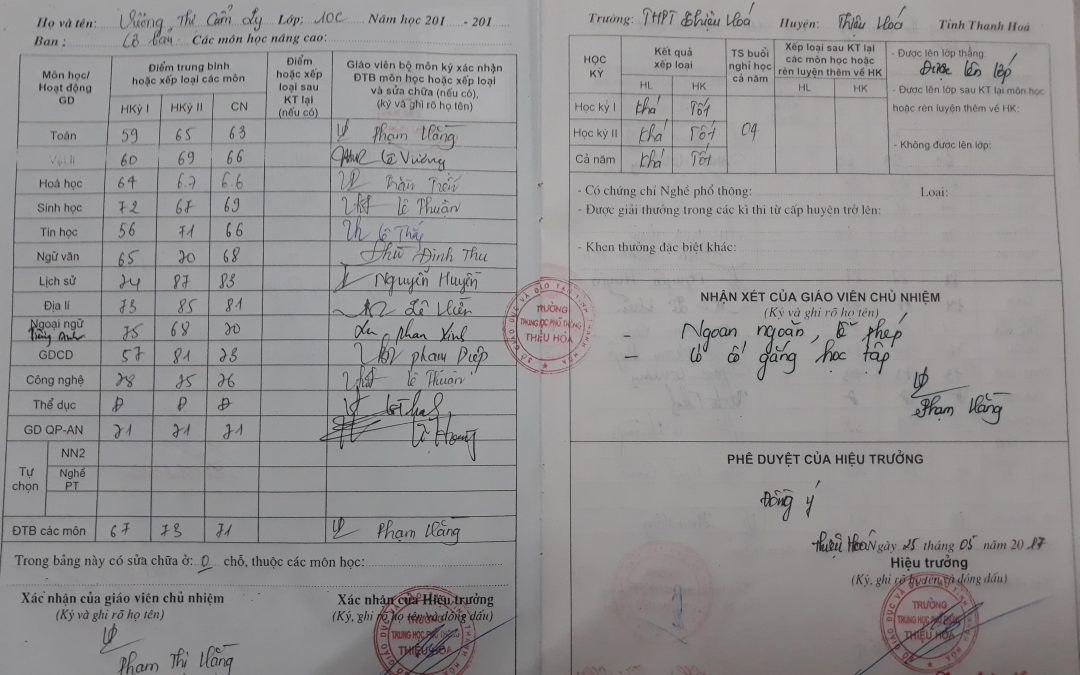 Họ và tên: Vương Thị Cẩm Ly Lớp: 10C Năm học 201 -201
Ban : Cơ bản Các môn học nâng cao:
Môn học/ Hoạt động GD
Điểm trung bình hoặc xếp loại các môn
HKỳ I HKỳ II CN
Điểm hoặc xếp loại sau KT lại (nếu có)
Giáo viên bộ môn ký xác nhận ĐTB môn học hoặc xếp loại và sửa chữa (nếu có), (ký và ghi rõ họ tên)
Toán 59 65 63 Phạm Hằng
Vật lí 60 69 66 Lê Vương
Hoá học 64 6.7 6.6 Trần
Sinh học 72 67 69 Lê Thuận
Tin học 56 71 66 Lê
Ngữ văn 65 70 68 Đinh Thu
Lịch sử 74 87 83 Nguyễn Huyền
Địa lí 73 85 81 Lê Hiền
Ngoại ngữ Tiếng Anh 75 68 70 Phan
GDCD 57 81 73 Phạm Diệp
Công nghệ 78 75 76 Lê Thuận
Thể dục Đ Đ Đ
GD QP-AN 71 71 71
Tự chọn
NN2
Nghề PT
ĐTB các môn 67 73 71 Phạm Hằng
Trong bảng này có sửa chữa ở: 0 chỗ, thuộc các môn học:
Xác nhận của giáo viên chủ nhiệm
(Ký và ghi rõ họ tên)
Phạm Thị Hằng
Xác nhận của Hiệu trưởng
(Ký, ghi rõ họ tên và đóng dấu)
SỞ GIÁO DỤC VÀ ĐÀO TẠO TỈNH THANH HÓA
TRƯỜNG
TRUNG HỌC PHỔ THÔNG
THIỆU HÓA
Trường: THPT Thiệu Hoá Huyện: Thiệu Hoá Tỉnh Thanh Hoá
HỌC KỲ
Kết quả xếp loại
HL HK
TS buổi nghỉ học cả năm
Xếp loại sau KT lại các môn học hoặc rèn luyện thêm về HK
HL HK
Học kỳ I Khá Tốt
Học kỳ II Khá Tốt 04
Cả năm Khá Tốt
- Được lên lớp thẳng:
Được lên lớp
- Được lên lớp sau KT lại môn học hoặc rèn luyện thêm về HK:
- Không được lên lớp:
- Có chứng chỉ Nghề phổ thông: Loại:
- Được giải thưởng trong các kì thi từ cấp huyện trở lên:
- Khen thưởng đặc biệt khác:
NHẬN XÉT CỦA GIÁO VIÊN CHỦ NHIỆM
(Ký và ghi rõ họ tên)
- Ngoan ngoãn, lễ phép
- Có cố gắng học tập
Phạm Hằng
PHÊ DUYỆT CỦA HIỆU TRƯỞNG
Đồng ý
Thiệu Hoá Ngày 25 tháng 05 năm 2017
Hiệu trưởng
(Ký, ghi rõ họ tên và đóng dấu)
TRƯỜNG
TRUNG HỌC PHỔ THÔNG
THIỆU HÓA